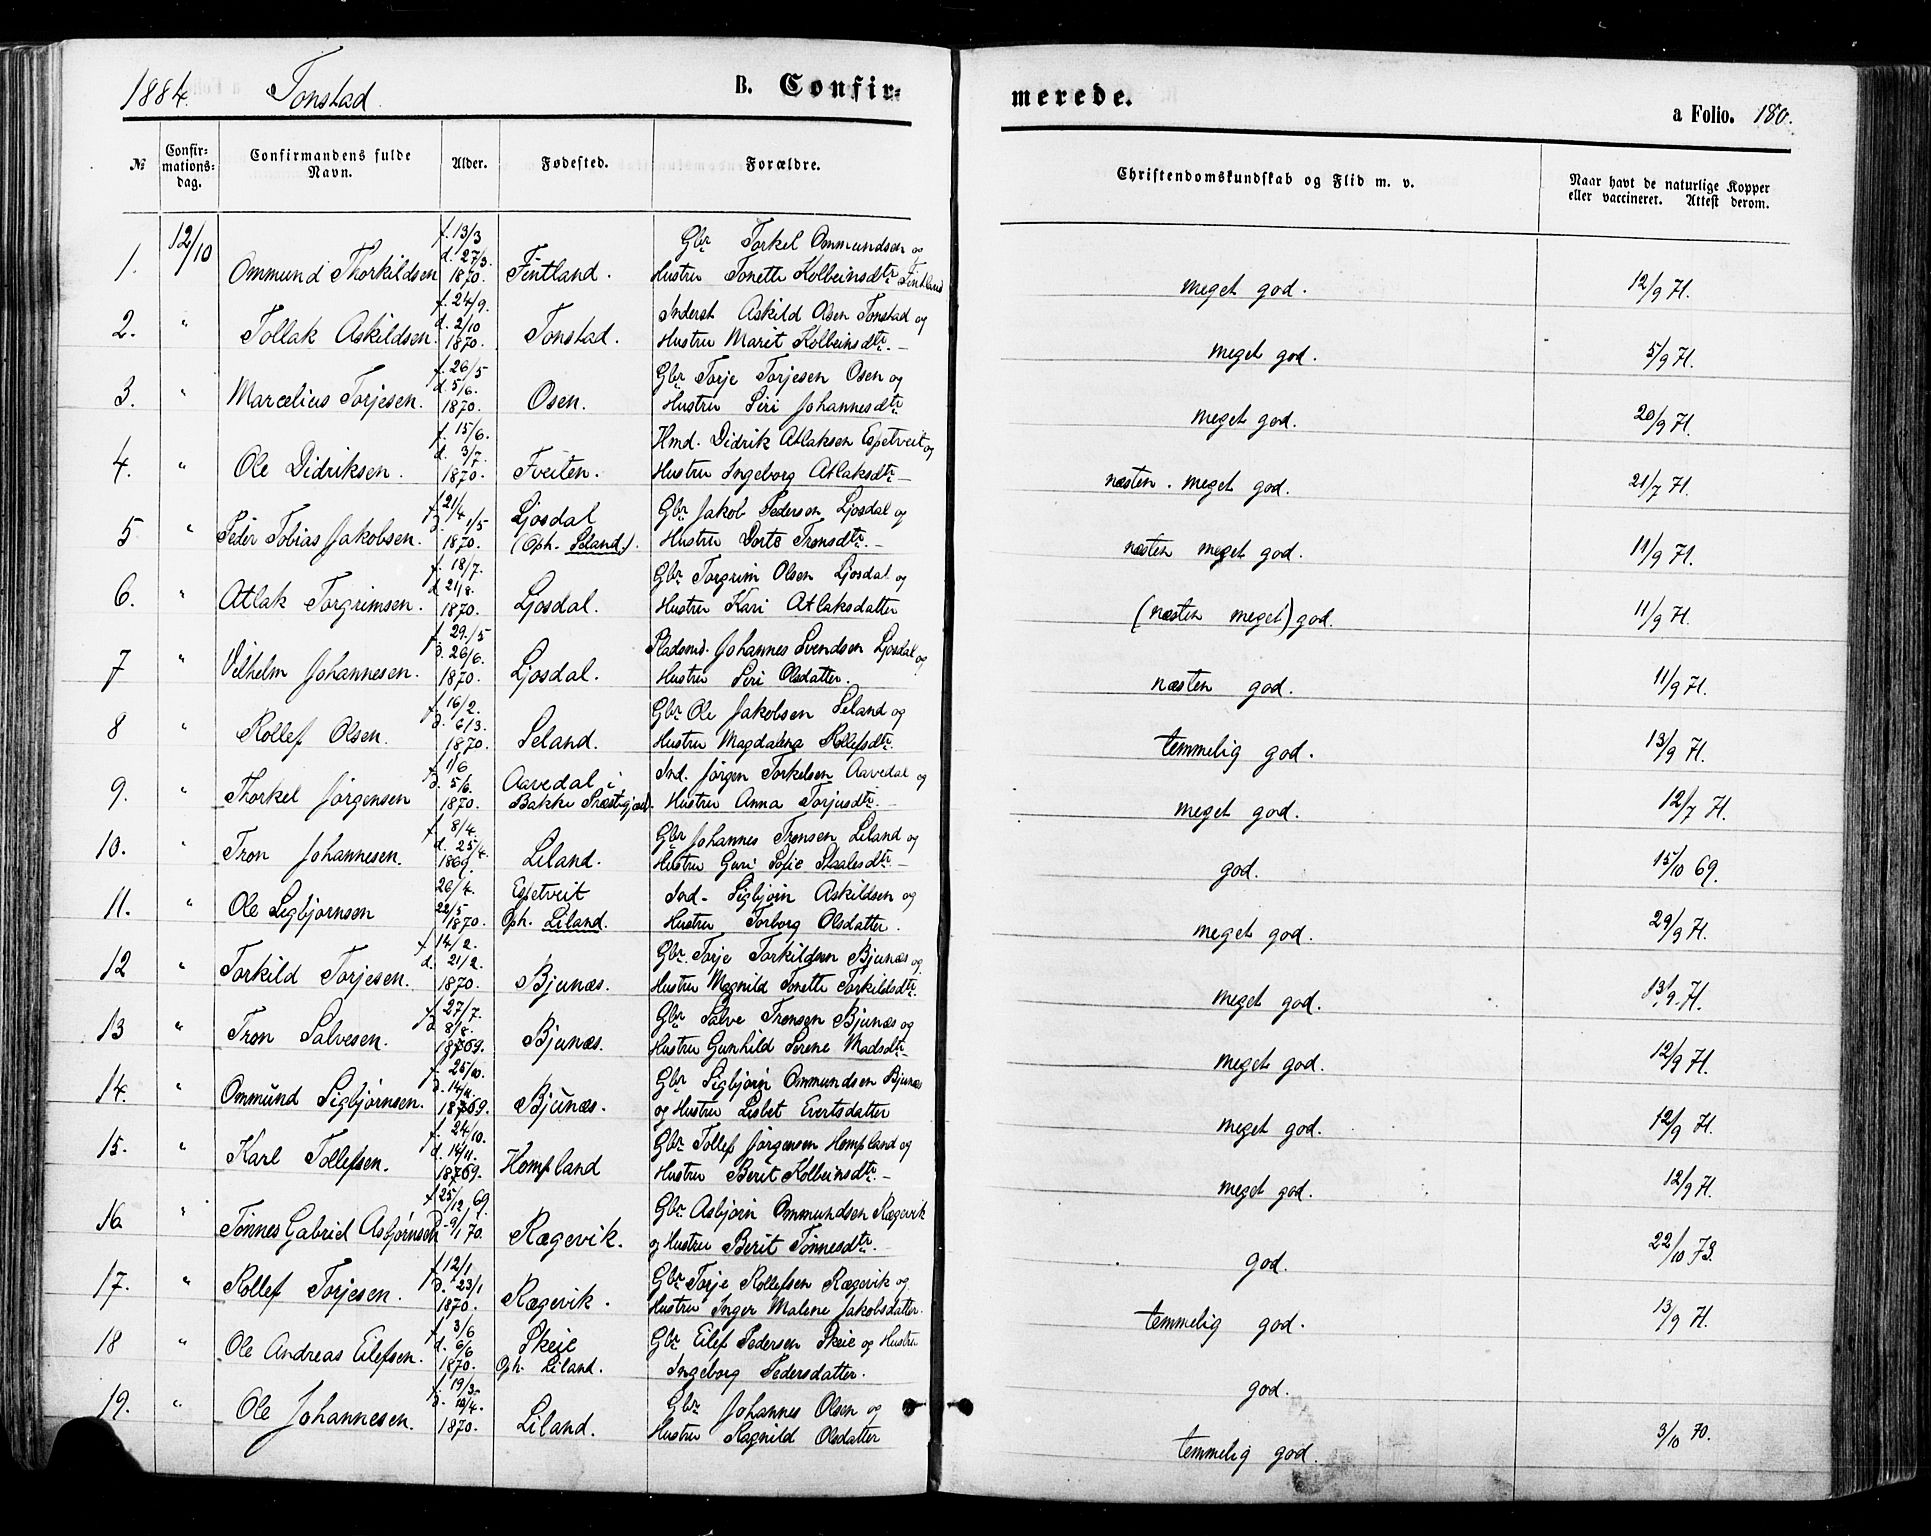 1884. Tonstad.
B. Confir=
merede.
a Folio. 180.
№
Confir=
mations=
dag.
Confirmandens fulde
Navn.
Alder.
Fødested.
Forældre.
Christendomskundskab og Flid m. v.
Naar havt de naturlige Kopper
eller vaccineret. Attest derom.
1. 12/10 Ommund Thorkildsen f. 13/3 d. 27/3. 1870. Fintland. Gbr Torkel Ommundsen og
Hustru Tonette Kolbeinsdtr Fintland meget god. 12/9 71.
2. " Tollak Askildsen. f. 24/9. d. 2/10 1870. Tonstad. Inderst Askild Olsen Tonstad og
Hustru Marit Kolbeinsdtr. — meget god. 5/9 71.
3. " Marcelius Torjesen. f. 26/5 d. 5/6. 1870. Osen. Gbr Torje Torjesen Osen og
Hustru Siri Johannesdtr meget god. 20/9 71.
4. " Ole Didriksen. f. 15/6. d. 3/7. 1870. Tveiten. Hmd. Didrik Atlaksen Espetveit og
Hustru Ingeborg Atlaksdtr — næsten meget god. 21/7 71.
5 " Peder Tobias Jakobsen. f. 21/4 d. 1/5 1870. Ljosdal
(Oph. Seland.). Gbr Jakob Pedersen Ljosdal og
Hustru Dorte Tronsdtr. — næsten meget god. 11/9 71.
6. " Atlak Torgrimsen. f. 18/7. d. 21/8. 1870. Ljosdal. Gbr Torgrim Olsen Ljosdal og
Hustru Kari Atlaksdatter (næsten meget) god. 11/9 71.
7 " Vilhelm Johannesen. f. 29/5 d. 26/6. 1870. Ljosdal. Pladsmd. Johannes Svendsen Ljosdal og
Hustru Siri Olsdatter. næsten god. 11/9 71.
8 " Rollef Olsen. f. 16/2. d. 6/3. 1870. Seland. Gbr Ole Jakobsen Seland og
Hustru Magdalena Rollefsdtr. temmelig god. 13/9 71.
9. " Thorkel Jørgensen f. 1/6 d. 5/6. 1870. Aavedal i
Bakke Præstegjæld. Ind. Jørgen Torkelsen Aavedal og
Hustru Anna Torjusdtr. — meget god. 12/7 71.
10. " Tron Johannesen. f. 8/4. d. 25/4. 1869. Liland. Gbr Johannes Tronsen Liland og
Hustru Guri Sofie Staalesdtr. — god. 15/10 69.
11. " Ole Sigbjørnsen 26/4. 22/5 1870. Espetveit
Oph. Liland. Ind. Sigbjørn Askildsen og
Hustru Torborg Olsdatter. meget god. 29/9 71.
12 " Torkild Torjesen. f. 14/2. d. 21/2. 1870. Bjunæs. Gbr. Torje Torkildsen Bjunæs og
Hustru Magnild Tonette Torkildsdtr. meget god. 13/9. 71.
13 " Tron Salvesen. f. 27/7. d. 8/8. 1869. Bjunæs. Gbr Salve Tronsen Bjunæs og
Hustru Gunhild Serene Madsdtr — meget god. 12/9 71.
14. " Ommund Sigbjørnsen. f. 25/10. d. 14/11. 1869. Bjunæs. Gbr Sigbjørn Ommundsen Bjunæs
og Hustru Lisbet Evertsdatter meget god. 12/9 71.
15. " Karl Tollefsen. f. 24/10. d. 14/11. 1869. Hompland Gbr Tollef Jørgensen Hompland og
Hustru Berit Kolbeinsdtr. — meget god. 12/9 71.
16. " Tønnes Gabriel Asbjørnsen f. 25/12 69. d. 9/1 70. Rægevik. Gbr Asbjørn Ommundsen Rægevik
og Hustru Berit Tønnesdtr. — god. 22/10 73.
17. " Rollef Torjesen. f. 12/1 d. 23/1 1870. Rægevik. Gbr Torje Rollefsen Rægevik og
Hustru Inger Malene Jakobsdatter. temmelig god. 13/9 71.
18 " Ole Andreas Eilefsen. f. 3/6 d. 6/6 1870. Skeie
Oph. Liland. Gbr Eilef Pedersen Skeie og Hustru
Ingeborg Pedersdatter. god.
19. " Ole Johannesen. f. 19/3. d. 10/4. 1870. Liland. Gbr Johannes Olsen og
Hustru Ragnild Olsdatter temmelig god. 3/10 70.